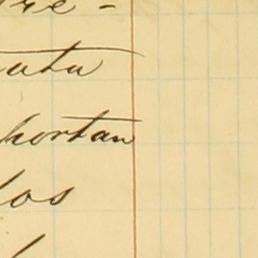 re -
ata
hortan
los